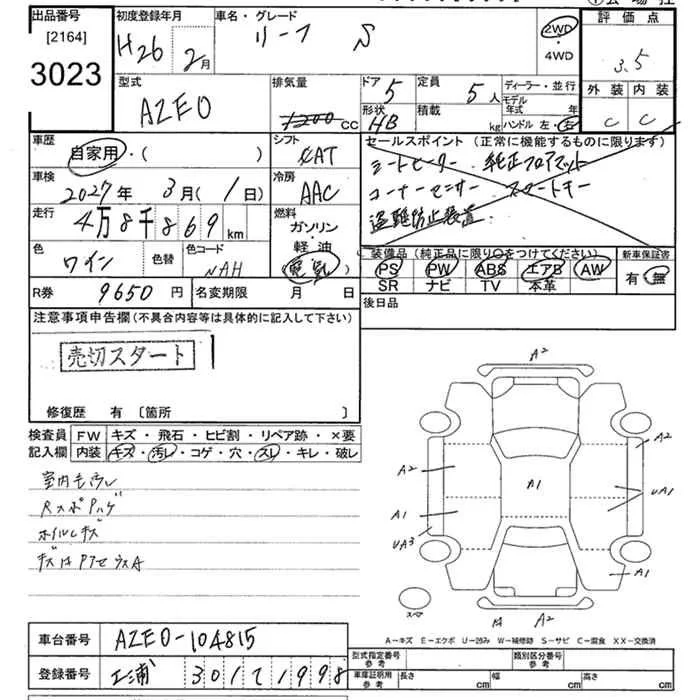 出品番号
[2164]
3023
初度登録年月
H26年 2月
車名・グレード
リーフ S
2WD
・
4WD
評価点
3.5
外装 内装
C C
型式
AZE0
排気量
1200 CC
ドア 5
形状 HB
定員 5人
積載 kg
ディーラー・並行
モデル年式 年
ハンドル 左・右
車歴
自家用・( )
シフト
CAT
セールスポイント(正常に機能するものに限ります)
シートヒーター 純正フロアマット
コーナーセンサー スマートキー
盗難防止装置
車検
2027年 3月(1日)
冷房
AAC
走行
4万8千869km
燃料
ガソリン
・
軽・油
電気
色
ワイン
色替
色コード
NAH
装備品(純正品に限り○をつけてください)
新車保証書
PS PW ABS エアB AW
有・無
SR ナビ TV 本革
R券 9650円
名変期限 月 日
後日品
注意事項申告欄(不具合内容等は具体的に記入して下さい)
売切スタート
修復歴 有 [箇所 ]
検査員 FW キズ・飛石・ヒビ割・リペア跡・×要
記入欄 内装 キズ・汚レ・コゲ・穴・スレ・キレ・破レ
室内キズ汚レ
RスポPハゲ
ホイルキズ
A2
A2
A2
A1
A1
UA1
UA3
A1
スペア
A2
A-キズ E-エクボ U-凹み W-補修跡 S-サビ C-腐食 XX-交換済
車台番号 AZE0-104815
登録番号 301 1998
型式指定番号 参考
類別区分番号 参考
車庫証明用 参考 長さ cm 幅 cm 高さ cm